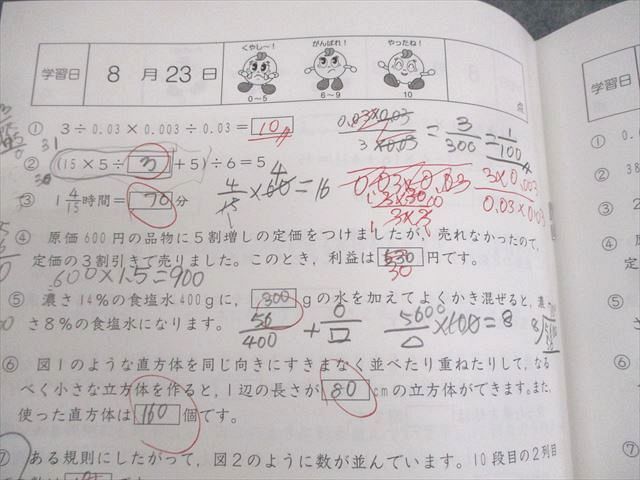 学習日 8月23日 くやし〜! 0〜5 がんばれ! 6〜9 やったね! 10 点
① 3÷0.03×0.003÷0.03= 10
② (15×5÷ 3 +5)÷6=5
③ 1 4/15 時間= 76 分
4/15×60=16
3/300 = 1/100
④ 原価600円の品物に5割増しの定価をつけましたが,売れなかったので,
定価の3割引きで売りました。このとき,利益は 30 円です。
600×1.5=900
⑤ 濃さ14%の食塩水400gに, 300 gの水を加えてよくかき混ぜると,濃
さ8%の食塩水になります。
56/400 + 0/□ 5600/△ ×100=8
⑥ 図1のような直方体を同じ向きにすきまなく並べたり重ねたりして,なる
べく小さな立方体を作ると,1辺の長さが 80 cmの立方体ができます。また,
使った直方体は 160 個です。
⑦ ある規則にしたがって,図2のように数が並んでいます。10段目の2列目
学習日
① 0.
② 38
③ 2
④
⑤
⑥
⑦